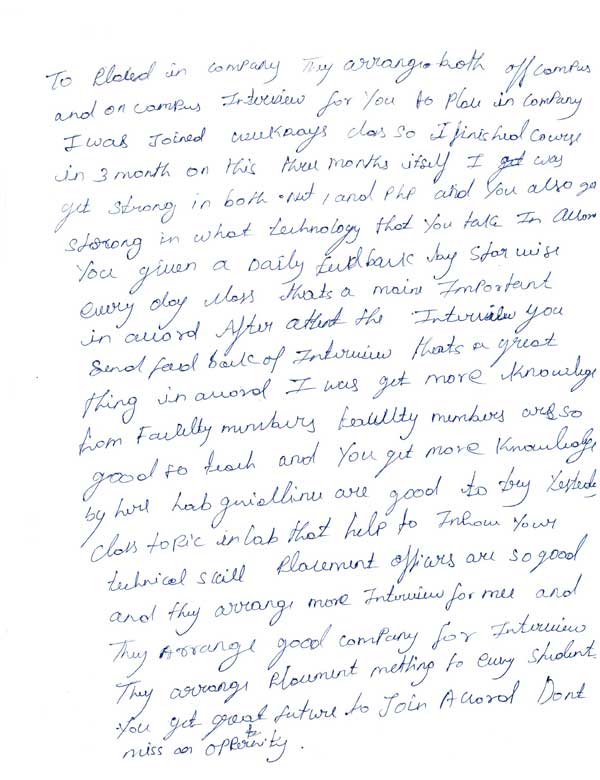 To Placed in company They arrange both off campus
and on campus Interview for You to Place in company
I was Joined weekdays class so I finished course
in 3 month on this three months itself I was
get strong in both .Net, and PhP and You also get
strong in what technology that You take In Accord
You given a Daily feedback by Star wise
every day class thats a main Important
in accord After attent the Interview you
Send feed back of Interview thats a great
thing in accord I was get more knowledge
from Faculity members faculity members are so
good so teach and You get more knowledge
by here Lab guidline are good to try Yesterday
class topic in lab that help to Your
technical skill Placement officers are so good
and they arrange more Interview for mee and
They Arrange good company for Interview
They arrange Placement metting to every student
You get great future to Join Accord Dont
miss an opportunity.